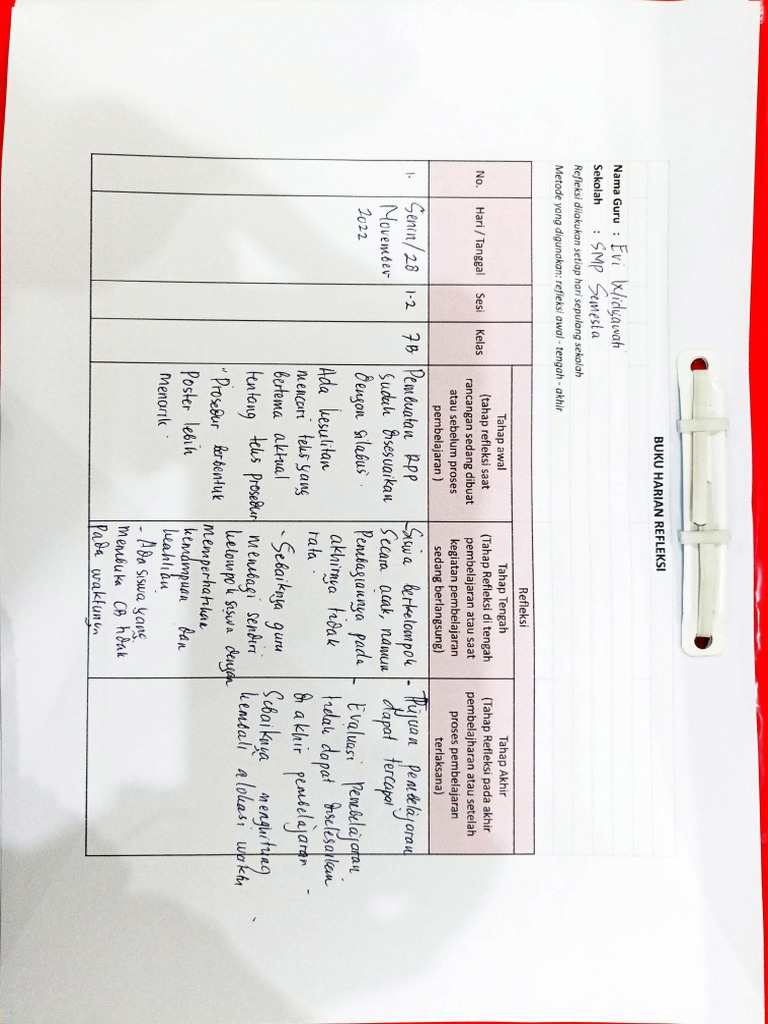 BUKU HARIAN REFLEKSI
Nama Guru : Evi Widyawati
Sekolah : SMP Semesta
Refleksi dilakukan setiap hari sepulang sekolah
Metode yang digunakan: refleksi awal - tengah - akhir
Refleksi
No.
Hari / Tanggal
Sesi
Kelas
Tahap awal
(tahap refleksi saat
rancangan sedang dibuat
atau sebelum proses
pembelajaran )
Tahap Tengah
(Tahap Refleksi di tengah
pembelajaran atau saat
kegiatan pembelajaran
sedang berlangsung)
Tahap Akhir
(Tahap Refleksi pada akhir
pembelajharan atau setelah
proses pembelajaran
terlaksana)
1.
Senin/28
November
2022
1-2
7B
Pembuatan RPP
sudah disesuaikan
dengan silabus.
Ada kesulitan
mencari teks yang
bertema aktual
tentang teks prosedur
" Prosedur berbentuk
Poster lebih
menarik.
Siswa berkelompok
secara acak, namun
Pembagiannya pada
akhirnya tidak
rata.
- Sebaiknya guru
membagi sendiri
kelompok siswa dengan
memperhatikan
kemampuan dan
keahlian
- Ada siswa yang
membuka CB tidak
pada waktunya
- Tujuan pembelajaran
dapat tercapai
- Evaluasi Pembelajaran
tidak dapat diselesaikan
di akhir pembelajaran -
Sebaiknya menghitung
kembali alokasi waktu.